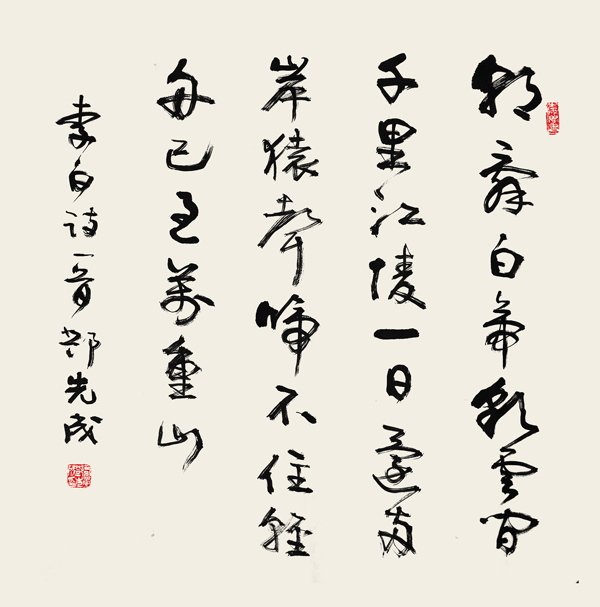 朝辭白帝彩雲間
千里江陵一日還兩
岸猿聲啼不住輕
舟已過萬重山
李白詩一首 先成